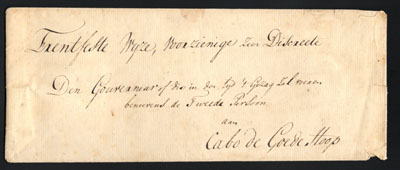 Erentfeste Wyze, Voorzienige Zeer Discreete
Den Gouverneur of die in den tyd 't Gezag zal voeren
benevens de Tweede Persoon
aan
Cabo de Goede Hoop